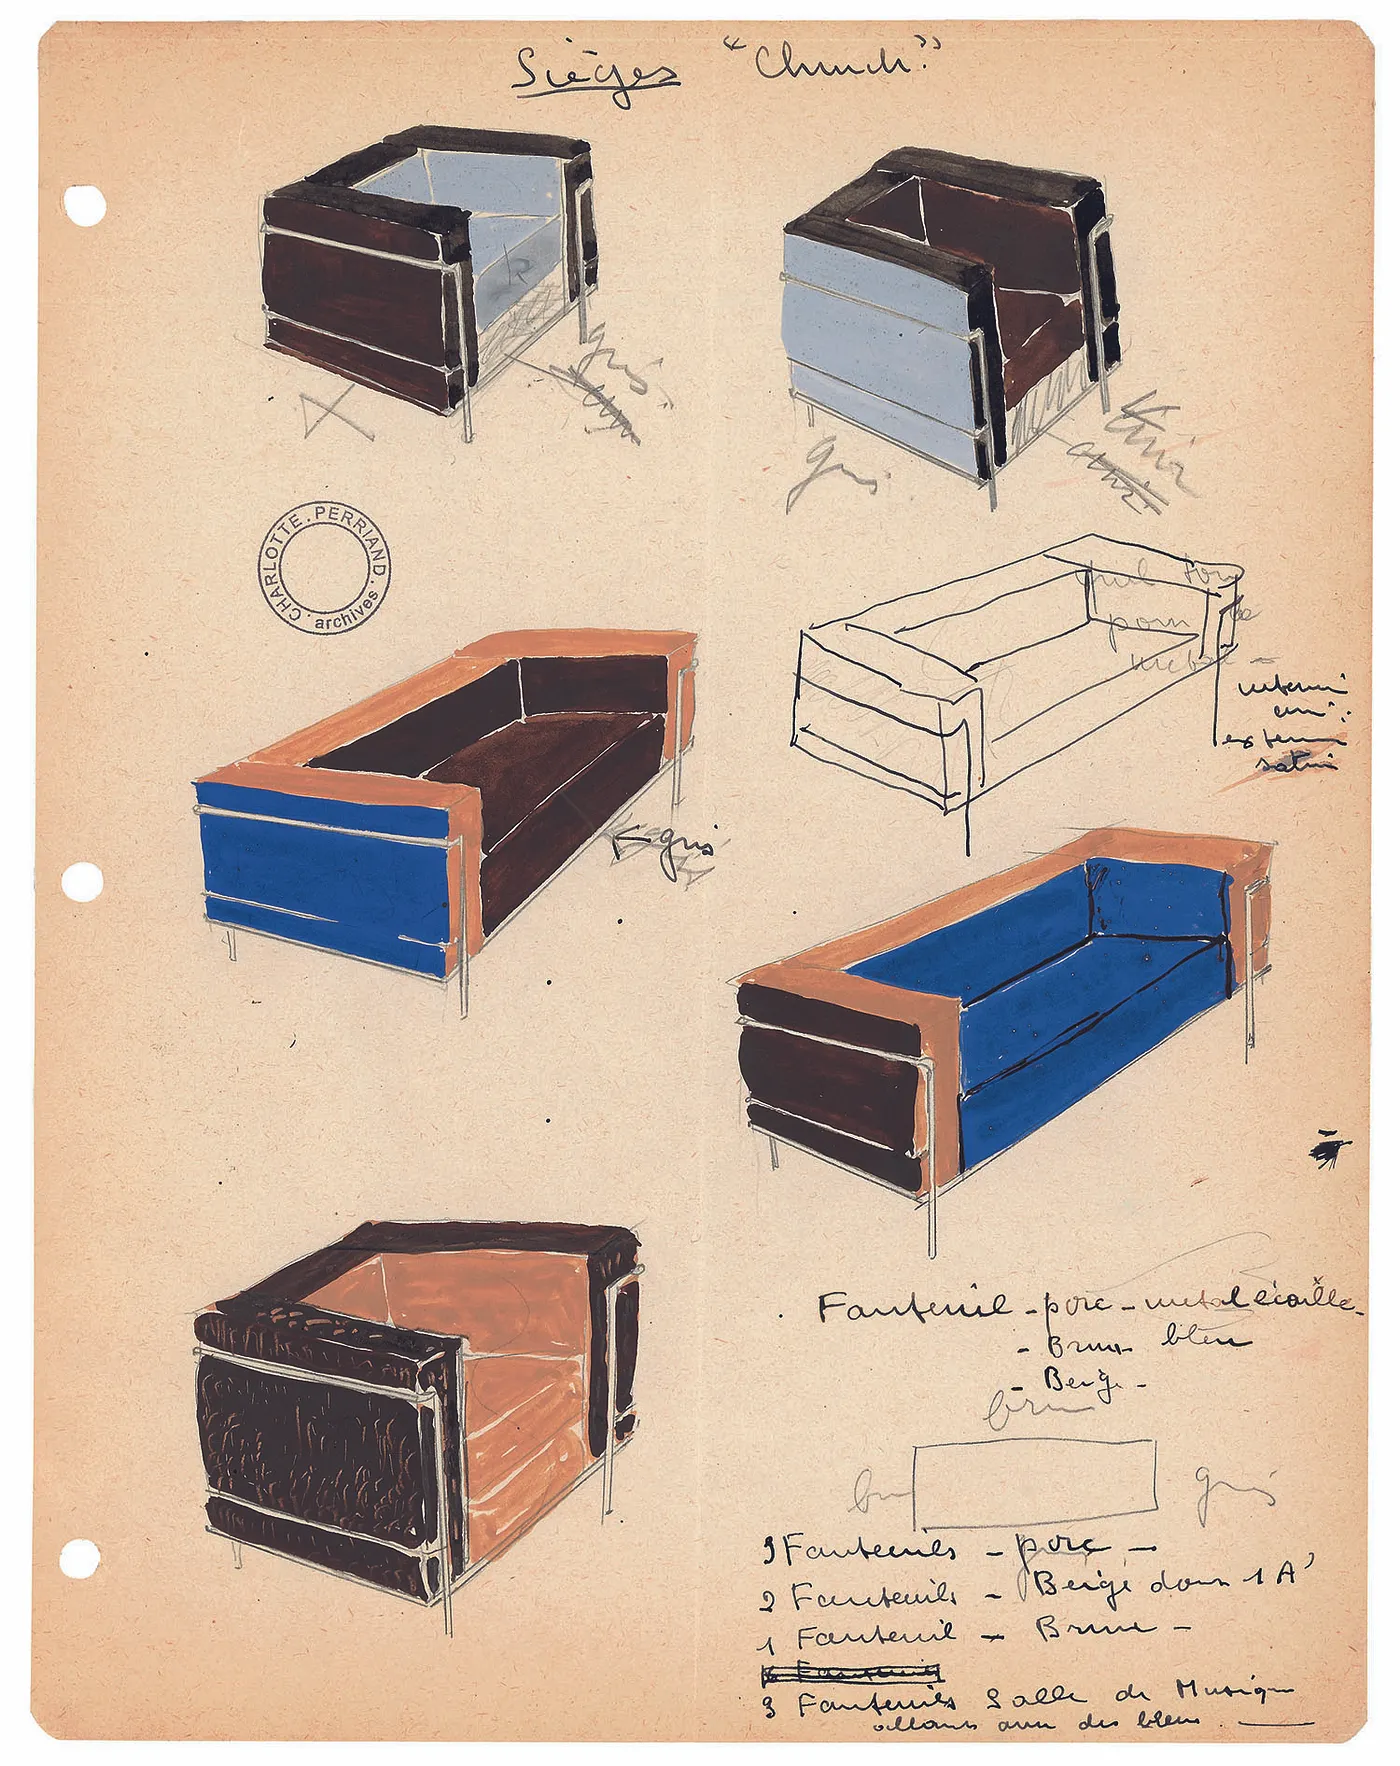 Sièges "Church"
gris
gris
noir
CHARLOTTE.PERRIAND. archives.
quel ton
pour le
métal
interieur
uni
exterieur
satiné
gris
Fauteuil - porc - metal écaille -
- Brun bleu
- Beige -
brun
brun gris
3 Fauteuils - porc -
2 Fauteuils - Beige dont 1 A'
1 Fauteuil - Brun -
3 Fauteuils Salle de Musique
allant avec des bleus.